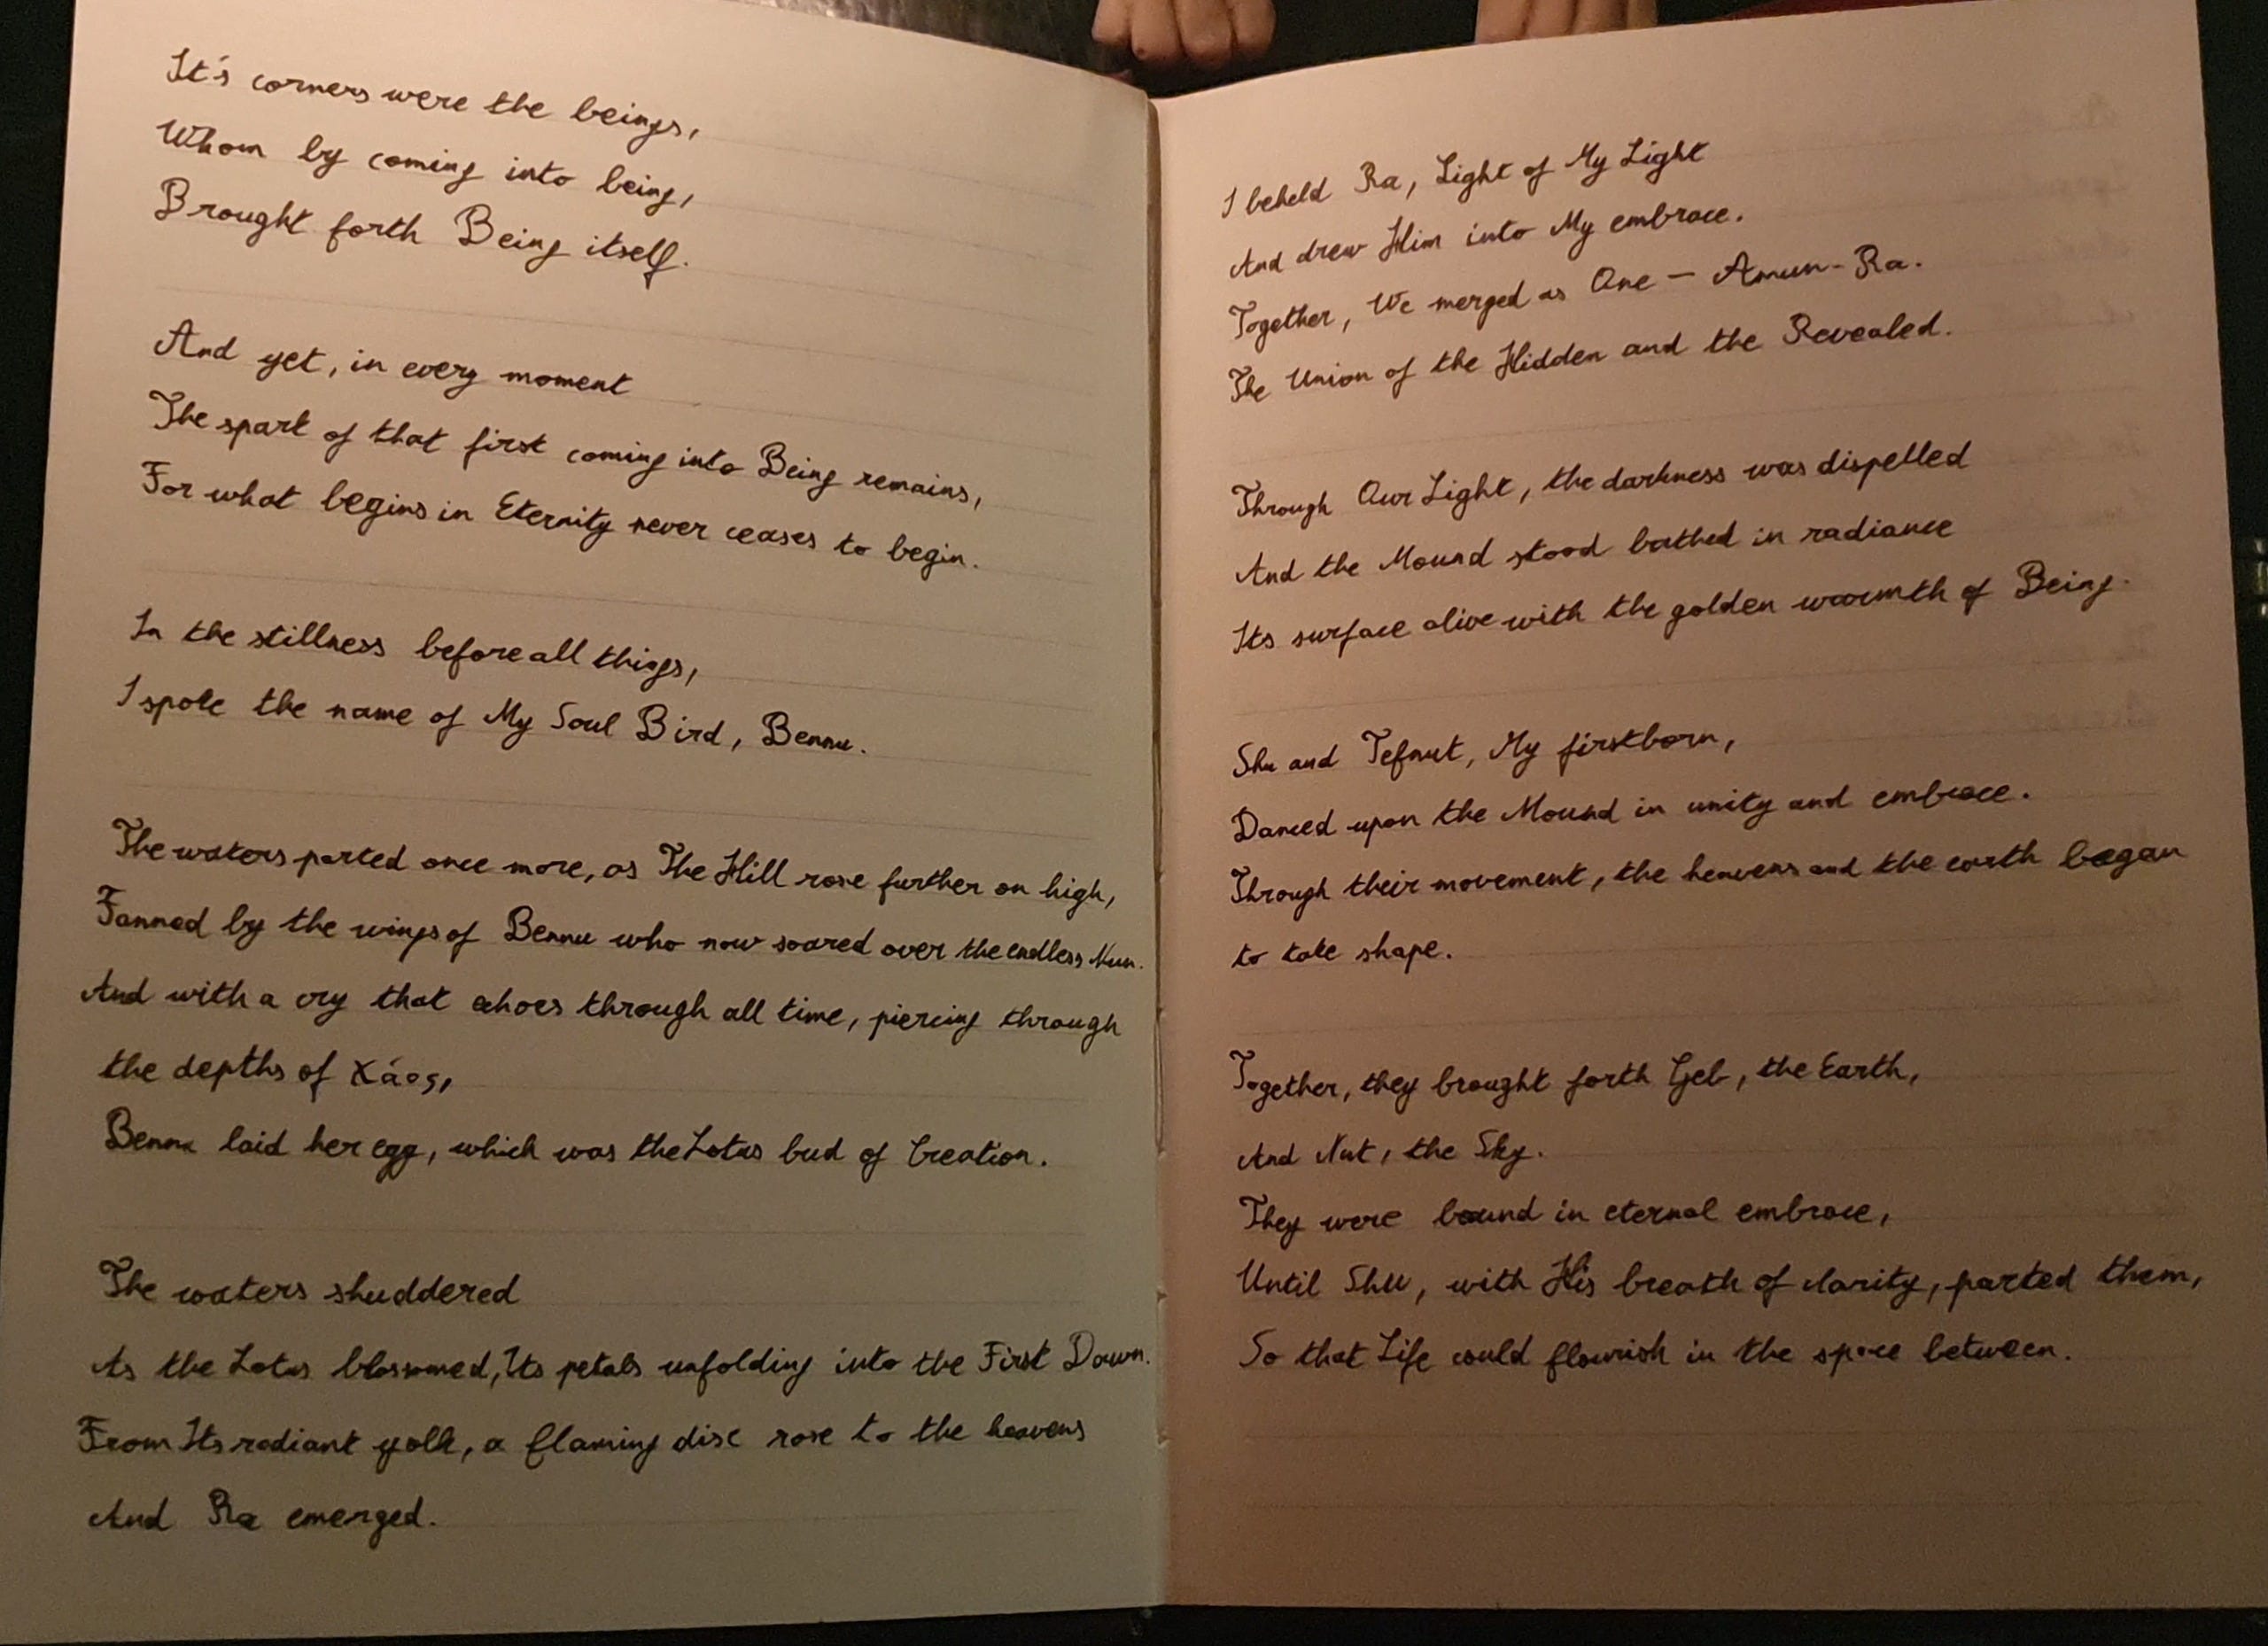 It's corners were the beings,
Whom by coming into being,
Brought forth Being itself.
And yet, in every moment
The spark of that first coming into Being remains,
For what begins in Eternity never ceases to begin.
In the stillness before all things,
I spoke the name of My Soul Bird, Bennu.
The waters parted once more, as The Hill rose further on high,
Fanned by the wings of Bennu who now soared over the endless Nun.
And with a cry that echoes through all time, piercing through
the depths of Χάος,
Bennu laid her egg, which was the Lotus bud of Creation.
The waters shuddered
As the Lotus blossomed, Its petals unfolding into the First Dawn.
From Its radiant yolk, a flaming disc rose to the heavens
And Ra emerged.
I beheld Ra, Light of My Light
And drew Him into My embrace.
Together, We merged as One – Amun-Ra.
The Union of the Hidden and the Revealed.
Through Our Light, the darkness was dispelled
And the Mound stood bathed in radiance
Its surface alive with the golden warmth of Being.
Shu and Tefnut, My firstborn,
Danced upon the Mound in unity and embrace.
Through their movement, the heavens and the earth began
to take shape.
Together, they brought forth Geb, the Earth,
And Nut, the Sky.
They were bound in eternal embrace,
Until Shu, with His breath of clarity, parted them,
So that Life could flourish in the space between.